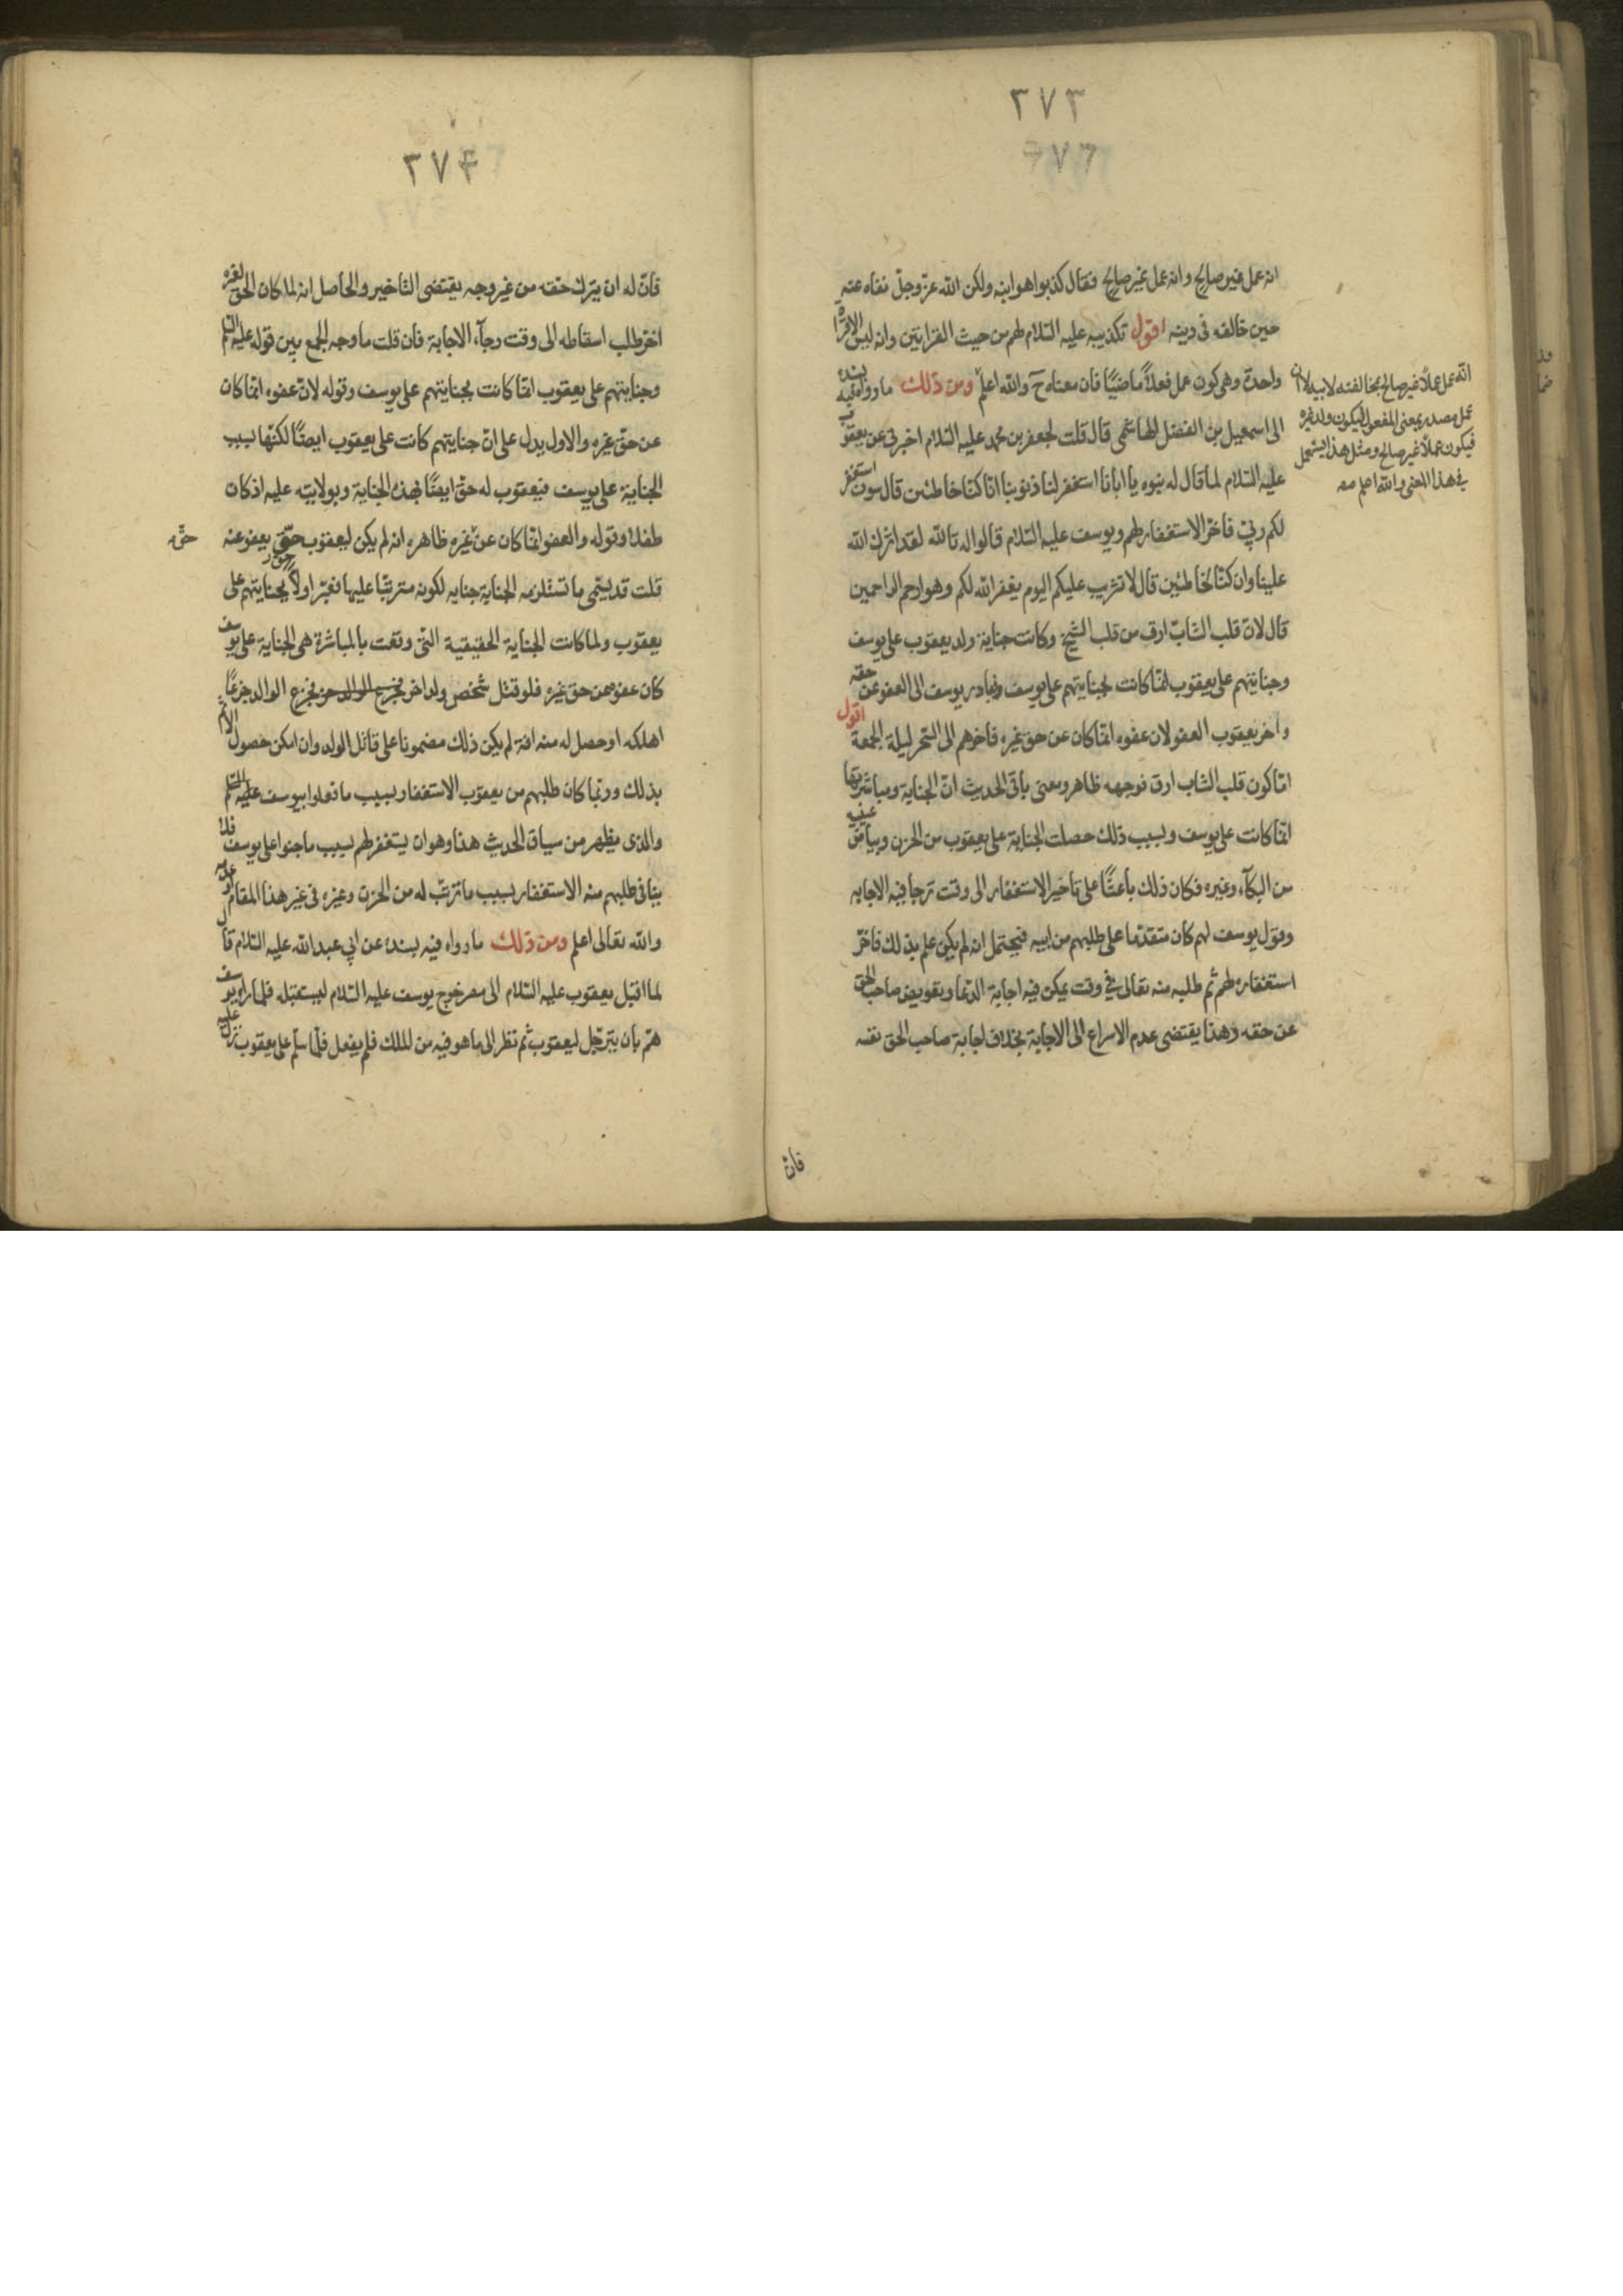 ٢٧٣
انه عمل غير صالح وانه عمل غير صالح فقال كذبوا هو ابنه ولكن الله عز وجل نفاه عنه
حين خالفه في دينه اقول تكذيبه عليه السلام لهم من حيث القرائتين وانه ليس الا قراءة
واحدة وهي كون عمل فعلاً ماضيًا فان معناه ح والله اعلم ومن ذلك ما رواه فيه بسنده
الى اسمعيل بن الفضل الهاشمي قال قلت لجعفر بن محمد عليه السلام اخبرني عن يعقوب
عليه السلام لما قال له بنوه يا ابانا استغفر لنا ذنوبنا انا كنا خاطئين قال سوف استغفر
لكم ربي فاخر الاستغفار لهم ويوسف عليه السلام قالوا له تالله لقد اثرك الله
علينا وان كنا لخاطئين قال لا تثريب عليكم اليوم يغفر الله لكم وهو ارحم الراحمين
قال لان قلب الشاب ارق من قلب الشيخ وكانت جناية ولد يعقوب على يوسف
وجنايتهم على يعقوب انما كانت بجنايتهم على يوسف فبادر يوسف الى العفو عن حقه
واخر يعقوب العفو لان عفوه انما كان عن حق غيره فاخرهم الى السحر ليلة الجمعة اقول
اما كون قلب الشاب ارق فوجهه ظاهر ومعنى باقي الحديث ان الجناية ومباشرتها
انما كانت على يوسف وبسبب ذلك حصلت الجناية على يعقوب من الحزن وبياض عينيه
من البكآء وغيره فكان ذلك باعثًا على تاخير الاستغفار الى وقت ترجا فيه الاجابه
وقول يوسف لهم كان متقدما على طلبهم من ابيه فيحتمل ان لم يكن علم بذلك فاخر
استغفاره لهم ثم طلبه منه تعالى في وقت يمكن فيه اجابة الدعا وتعويض صاحب الحق
عن حقه وهذا يقتضي عدم الاسراع الى الاجابة بخلاف اجابة صاحب الحق نفسه
فان
الله عمل عملاً غير صالح بمخالفته لابيه لا ان
عمل مصدر بمعنى المفعول فيكون ولد غيره
فيكون عملاً غير صالح ومثل هذا يستعمل
في هذا المعنى والله اعلم منه
٢٧٤
فان له ان يترك حقه من غير وجه يقتضي التاخير والحاصل انه لما كان الحق لغيره
اخر طلب اسقاطه الى وقت رجآء الاجابة فان قلت ما وجه الجمع بين قوله عليه السلم
وجنايتهم على يعقوب انما كانت بجنايتهم على يوسف وقوله لان عفوه انما كان
عن حق غيره والاول يدل على ان جنايتهم كانت على يعقوب ايضًا لكنها بسبب
الجناية على يوسف فيعقوب له حق ايضًا بهذه الجناية وبولايته عليه اذ كان
طفلا وقوله والعفو انما كان عن غيره ظاهره انه لم يكن ليعقوب حق يعفو عنه
حق
قلت قد يسمى ما تستلزمه الجناية جنايه لكونه مترتبا عليها فعبر اولاً بجنايتهم على
يعقوب ولما كانت الجناية الحقيقية التي وقعت بالمباشرة هي الجناية على يوسف
كان عفوه عن حق غيره فلو قتل شخص ولد اخر فجزع الوالد جزعًا
اهلكه او حصل له منه افة لم يكن ذلك مضمونا على قاتل الولد وان امكن حصول الاثم
بذلك وربما كان طلبهم من يعقوب الاستغفار بسبب ما فعلوا بيوسف عليه السلم
والذي يظهر من سياق الحديث هذا وهو ان يستغفر لهم بسبب ما جنوا على يوسف فلا
ينافي طلبهم منه الاستغفار بسبب ما ترتب له من الحزن وغيره في غير هذا المقام
والله تعالى اعلم ومن ذلك ما رواه فيه بسنده عن ابي عبد الله عليه السلام قال
لما اقبل يعقوب عليه السلام الى مصر خرج يوسف عليه السلام ليستقبله فلما راه يوسف
هم بان يترجل ليعقوب ثم نظر الى ما هو فيه من الملك فلم يفعل فلما سلم على يعقوب نزل عليه